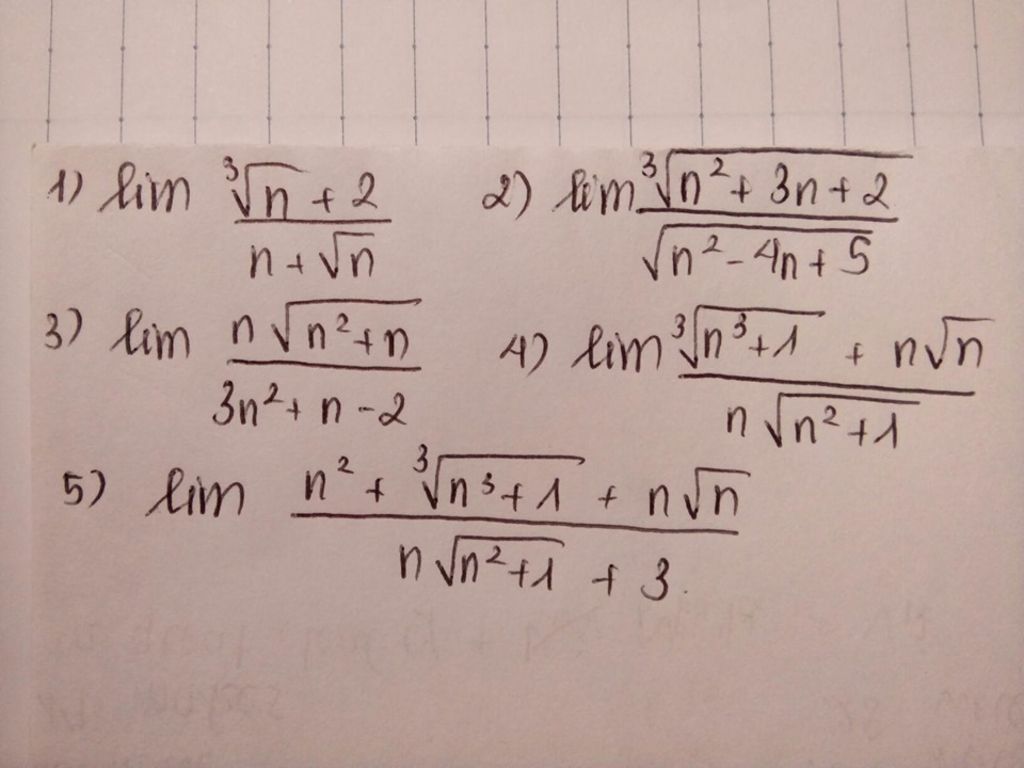 1) lim (∛n + 2)/(n + √n) 2) lim ∛(n² + 3n + 2)/√(n² - 4n + 5)
3) lim n√(n² + n)/(3n² + n - 2) 4) lim (∛(n³ + 1) + n√n)/(n√(n² + 1))
5) lim (n² + ∛(n³ + 1) + n√n)/(n√(n² + 1) + 3).